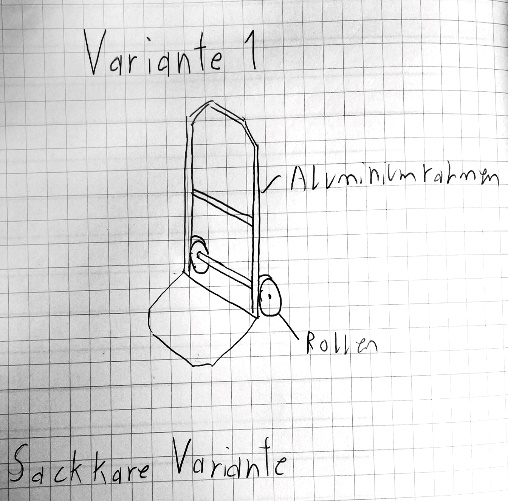 Variante 1
Aluminiumrahmen
Rollen
Sackkare Variante